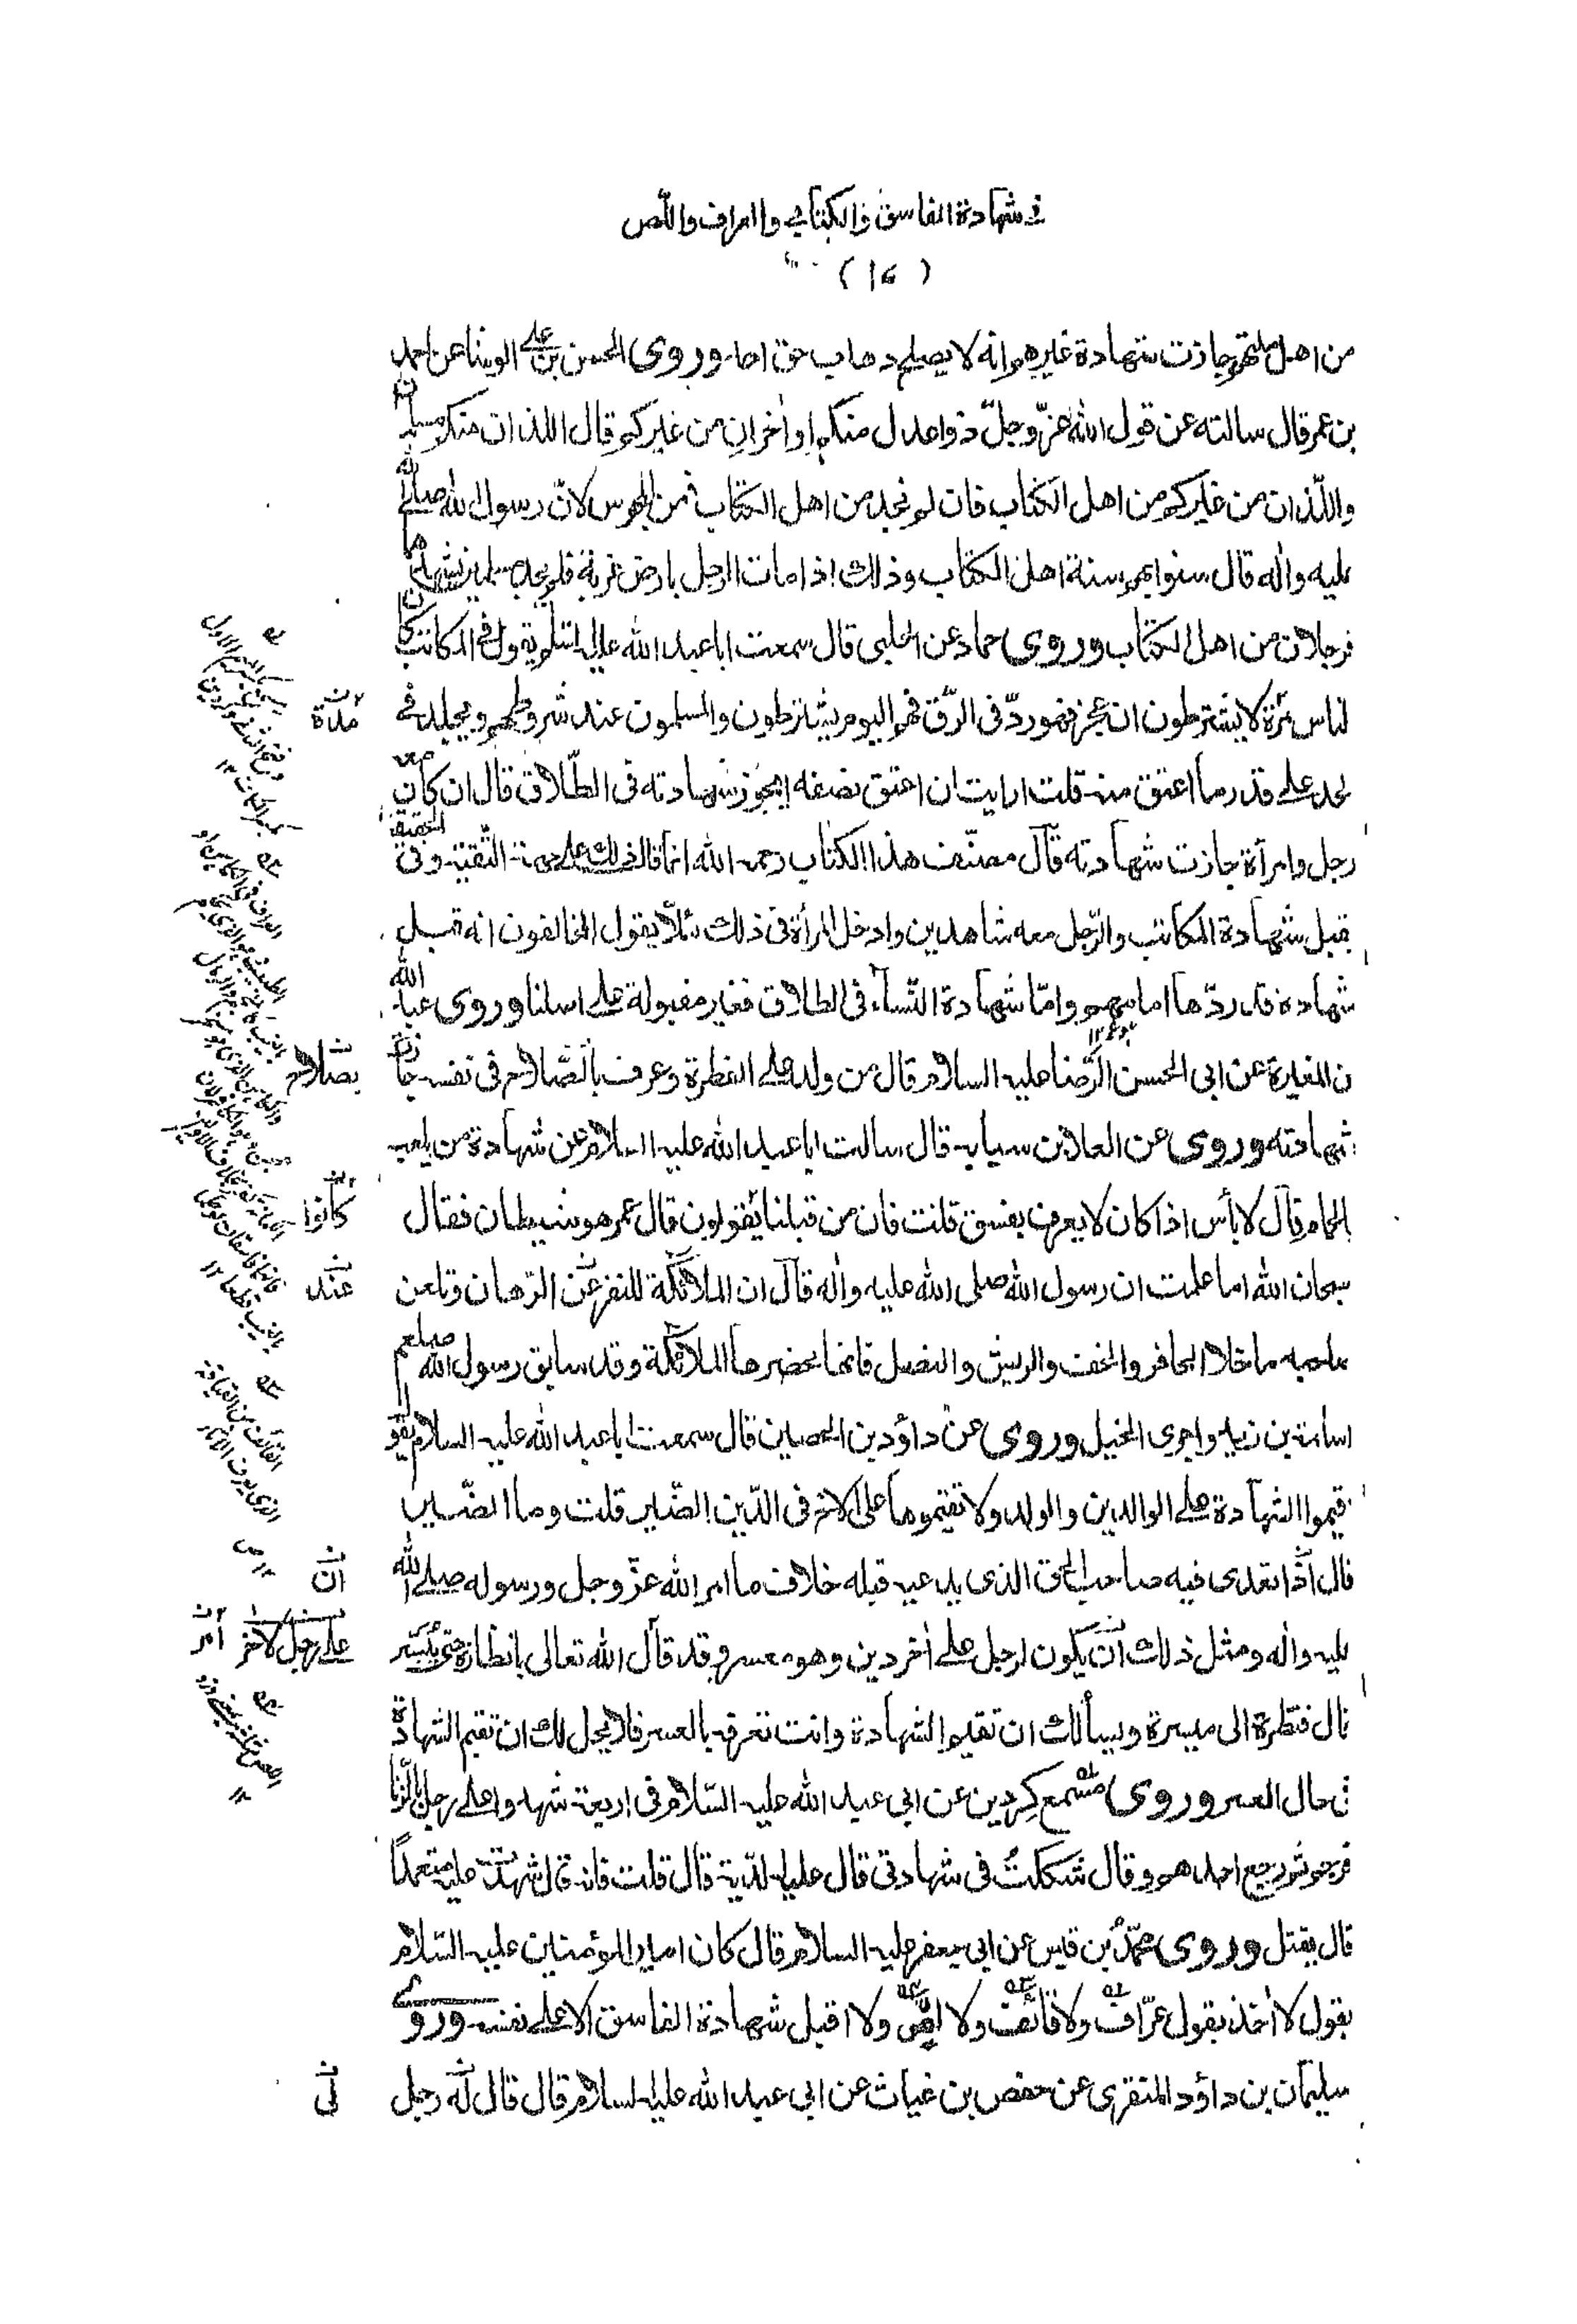 فى شهادة الفاسق والكتابي والعراف واللص
(١٧)
من اهل ملتهم جازت شهادة غيرهم انه لا يصلح ذهاب حق احد وروى الحسن بن على الوشا عن احمد
بن عمر قال سالته عن قول الله عزّ وجلّ ذوا عدل منكم او اٰخران من غيركم قال اللذان منكم مسلمان
واللّذان من غيركم من اهل الكتاب فان لم تجد من اهل الكتاب فمن المجوس لانّ رسول الله صلى الله
عليه واٰله قال سنوا بهم سنة اهل الكتاب وذلك اذا مات الرجل بارض غربة فلم يجد مسلمين يشهدهما
فرجلان من اهل الكتاب وروى حماد عن الحلبى قال سمعت ابا عبد الله عليه السلام يقول فى المكاتب كان
الناس مرّة لا يشترطون ان عجز فهو ردّ فى الرّق فهم اليوم يشترطون والمسلمون عند شروطهم ويجلد فى
الحد على قدر ما اعتق منه قلت ارايت ان اعتق نصفه ايجوز شهادته فى الطّلاق قال ان كان معه
رجل وامرأة جازت شهادته قال مصنّف هذا الكتاب رحمه الله انما قال ذلك على جهة التّقية وفى الحقيقة
يقبل شهادة المكاتب والرّجل معه شاهدين وادخل المرأة فى ذلك لئلّا يقول المخالفون انه قبل
شهادة قد ردّها امامهم وامّا شهادة النّساء فى الطلاق فغير مقبولة على اصلنا وروى عبد الله
بن المغيرة عن ابى الحسن الرّضا عليه السلام قال من ولد على الفطرة وعرف بالصّلاح فى نفسه جازت
شهادته وروى عن العلا بن سيابه قال سالت ابا عبد الله عليه السلام عن شهادة من يلعب
بالحمام قال لا بأس اذا كان لا يعرف بفسق قلت فان من قبلنا يقولون قال عمر هو شيطان فقال
سبحان الله اما علمت ان رسول الله صلى الله عليه واٰله قال ان الملائكة لتنفر عن الرّهان وتلعن
صاحبه ما خلا الحافر والخف والريش والنصل فانها يحضرها الملائكة وقد سابق رسول الله صلعم
اسامة بن زيد واجرى الخيل وروى عن داؤد بن الحصين قال سمعت ابا عبد الله عليه السلام يقول
اقيموا الشهادة على الوالدين والولد ولا تقيموها على الاخ فى الدّين الضّير قلت وما الضّير
قال اذا تعدى فيه صاحب الحق الذى يدعيه قبله خلاف ما امر الله عزّ وجل ورسوله صلى الله
عليه واٰله ومثل ذلك ان يكون لرجل على اٰخر دين وهو معسر وقد قال الله تعالى بانظاره حتى ييسر
قال فنظرة الى ميسرة ويسألك ان تقيم الشهادة وانت تعرفه بالعسر فلا يحل لك ان تقيم الشهادة
فى حال العسر وروى مسمع كردين عن ابى عبد الله عليه السّلام فى اربعة شهدوا على رجل بالزّنا
فرجم ثم رجع احدهم وقال شككت فى شهادتى قال عليه الدّية قال قلت فانه قال شهدت عليه متعمداً
قال يقتل وروى محمّد بن قيس عن ابى جعفر عليه السلام قال كان امير المؤمنين عليه السّلام
يقول لا اٰخذ بقول عرّاف ولا قائف ولا لصّ ولا اقبل شهادة الفاسق الا على نفسه وروى
سليمان بن داؤد المنقرى عن حفص بن غياث عن ابى عبد الله عليه السلام قال قال له رجل
بصلاح
كانوا
عند
ان
على رجل لاٰخر
لى